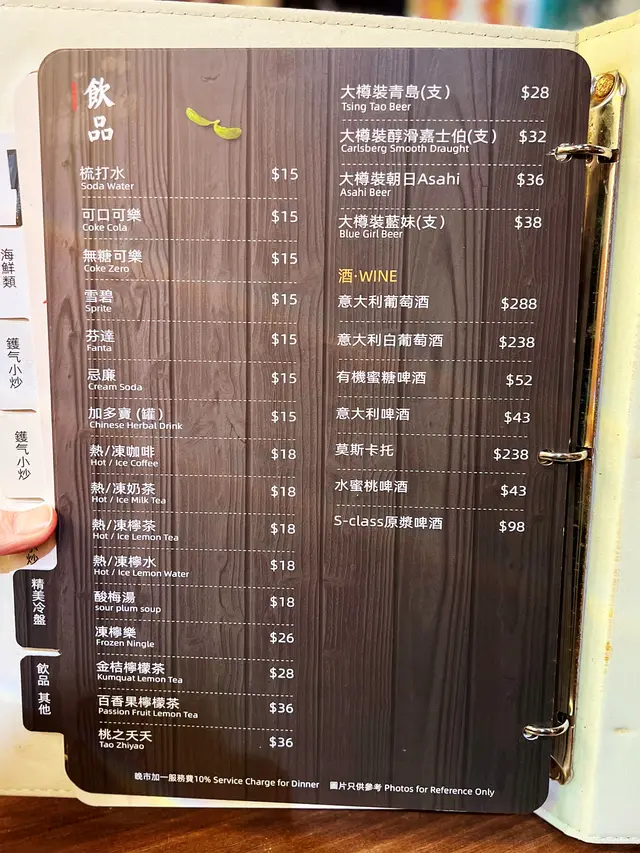 飲品
梳打水 $15
Soda Water
可口可樂 $15
Coke Cola
無糖可樂 $15
Coke Zero
雪碧 $15
Sprite
芬達 $15
Fanta
忌廉 $15
Cream Soda
加多寶 (罐) $15
Chinese Herbal Drink
熱/凍咖啡 $18
Hot / Ice Coffee
熱/凍奶茶 $18
Hot / Ice Milk Tea
熱/凍檸茶 $18
Hot / Ice Lemon Tea
熱/凍檸水 $18
Hot / Ice Lemon Water
酸梅湯 $18
sour plum soup
凍檸樂 $26
Frozen Ningle
金桔檸檬茶 $28
Kumquat Lemon Tea
百香果檸檬茶 $36
Passion Fruit Lemon Tea
桃之夭夭 $36
Tao Zhiyao
大樽裝青島(支) $28
Tsing Tao Beer
大樽裝醇滑嘉士伯(支) $32
Carlsberg Smooth Draught
大樽裝朝日Asahi $36
Asahi Beer
大樽裝藍妹(支) $38
Blue Girl Beer
酒·WINE
意大利葡萄酒 $288
意大利白葡萄酒 $238
有機蜜糖啤酒 $52
意大利啤酒 $43
莫斯卡托 $238
水蜜桃啤酒 $43
S-class原漿啤酒 $98
晚市加一服務費10% Service Charge for Dinner 圖片只供參考 Photos for Reference Only
海鮮類
鑊气小炒
鑊气小炒
炒
精美冷盤
飲品 其他